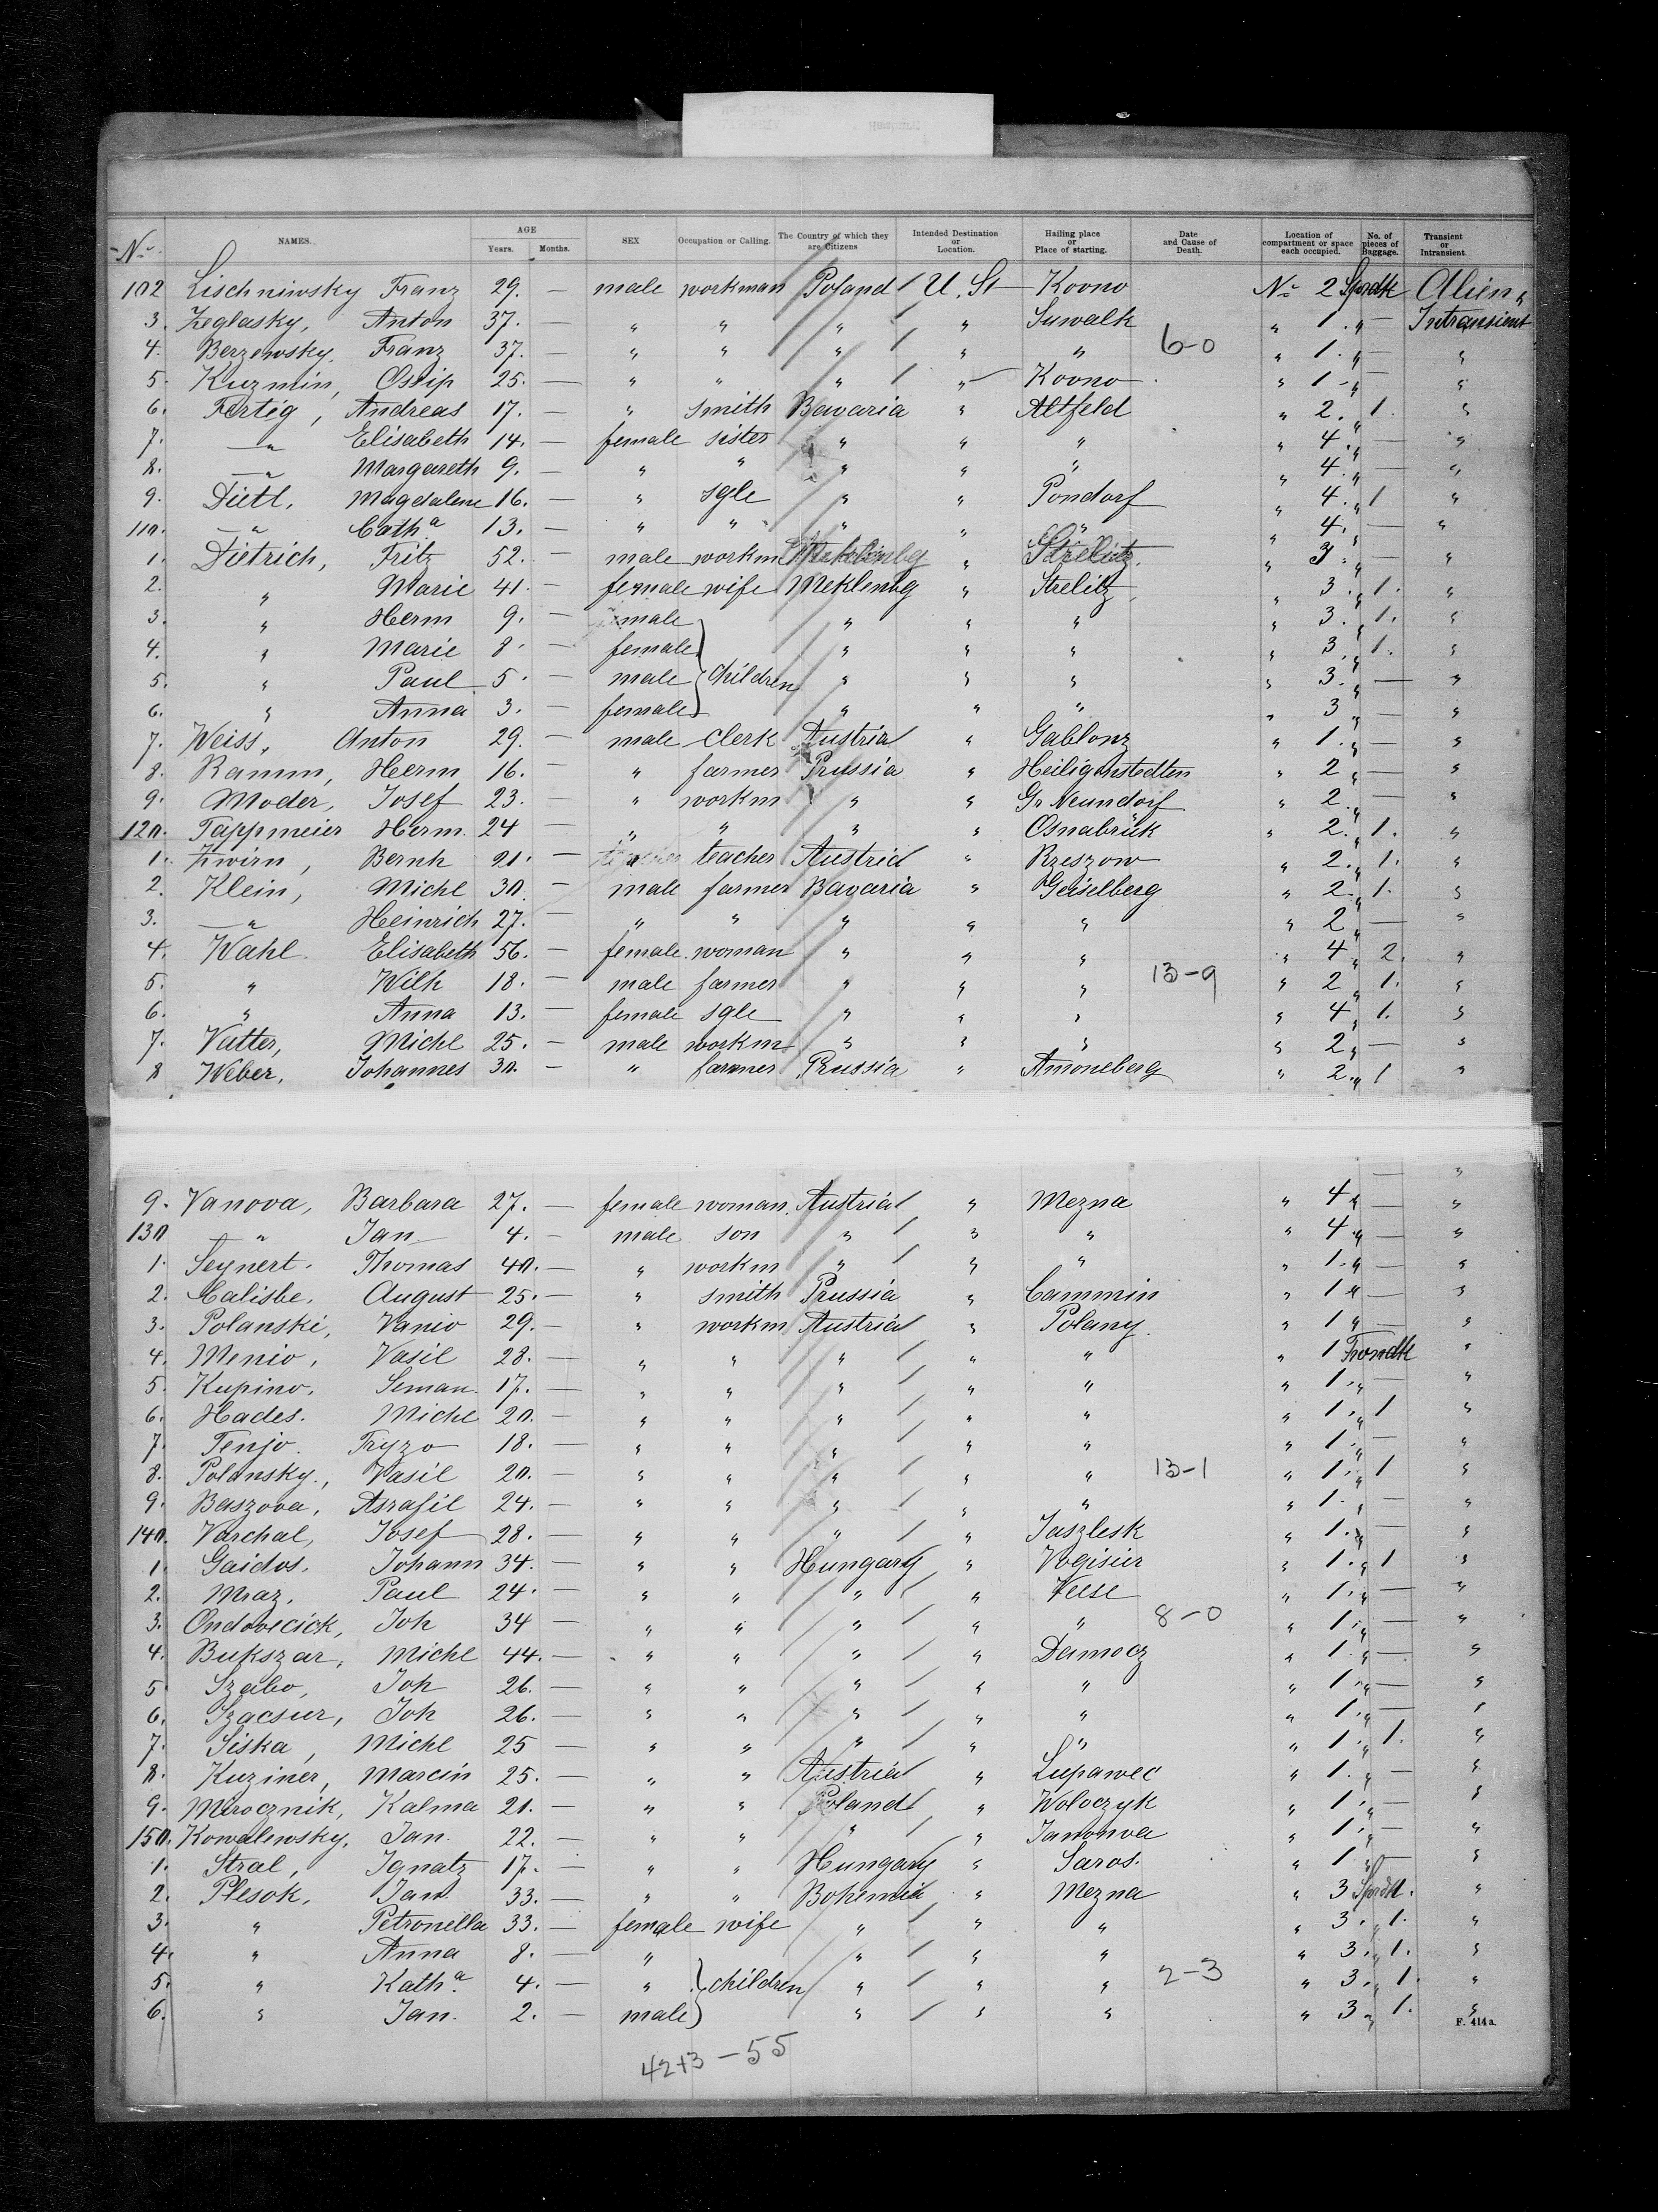 No. NAMES. AGE Years. Months. SEX Occupation or Calling. The Country of which they are Citizens Intended Destination or Location. Hailing place or Place of starting. Date and Cause of Death. Location of compartment or space each occupied. No. of pieces of Baggage. Transient or Intransient.
102 Lischniwsky Franz 29. — male workman Poland U. St Kovno No 2 Sprdk Alien
3. Zeglasky, Anton 37. — " " " " Suwalk " 1. " — Intransient
4. Berzewsky, Franz 37. — " " " " " 6-0 " 1. " — "
5. Kuzmin, Ossip 25. — " " " " Kovno " 1. " — "
6. Fertig, Andreas 17. — " smith Bavaria " Altfeld " 2. " 1. "
7. " Elisabeth 14. — female sister " " " " 4. " — "
8. " Margareth 9. — " " " " " " 4. " — "
9. Dietl, Magdalene 16. — " sgle " " Pondorf " 4. " 1 "
110. " Catha 13. — " " " " " " 4. " — "
1. Dietrich, Fritz 52. — male workm " Strelitz " 3. " — "
2. " Marie 41. — female wife Meklenbg " Strelitz " 3. " 1. "
3. " Herm 9. — male " " " " 3. " 1. "
4. " Marie 8. — female " " " " 3. " 1. "
5. " Paul 5. — male children " " " " 3. " — "
6. " Anna 3. — female " " " " 3 " — "
7. Weiss, Anton 29. — male clerk Austria " Gablonz " 1. " — "
8. Ramm, Herm 16. — " farmer Prussia " Heiligenstedten " 2 " — "
9. Moder, Josef 23. — " workm " " Gr Neundorf " 2. " — "
120. Tappmeier Herm. 24 — " " " " Osnabrük " 2. " 1. "
1. Zwirn, Bernh 21. — " teacher Austria " Rzeszow " 2. " 1. "
2. Klein, Michl 30. — male farmer Bavaria " Geiselberg " 2. " 1. "
3. " Heinrich 27. — " " " " " " 2 " — "
4. Wahl. Elisabeth 56. — female woman " " " " 4 " 2. "
5. " Wilh 18. — male farmer " " " 13-9 " 2 " 1. "
6. " Anna 13. — female sgle " " " " 4 " 1. "
7. Vatter, Michl 25. — male workm " " " " 2 " — "
8 Weber, Johannes 30. — " farmer Prussia " Amoneberg " 2. " 1 "
9. Vanova, Barbara 27. — female woman Austria " Mezna " 4 " — "
130 " Jan 4. — male son " " " " 4 " — "
1. Seynert. Thomas 40. — " workm " " " " 1. " — "
2. Calisbe, August 25. — " smith Prussia " Cammin " 1 " — "
3. Polanski, Vanio 29. — " workm Austria " Polany " 1 " — "
4. Menio, Vasil 28. — " " " " " " 1 Frondk "
5. Kupino, Seman 17. — " " " " " " 1. " — "
6. Hades. Michl 20. — " " " " " " 1. " 1 "
7. Tenjo. Fryzo 18. — " " " " " " 1. " — "
8. Polansky, Vasil 20. — " " " " " 13-1 " 1. " 1 "
9. Baszova, Asrafil 24. — " " " " " " 1. " — "
140. Varchal, Josef 28. — " " " " Jaszlesk " 1. " — "
1. Gaidos. Johann 34. — " " Hungary " Vogisier " 1. " 1 "
2. Mraz, Paul 24. — " " " " Veese " 1. " — "
3. Ondovecick, Joh 34 — " " " " " 8-0 " 1. " — "
4. Bukszar, Michl 44. — " " " " Damocz " 1. " — "
5 Szabo, Joh 26. — " " " " " " 1. " — "
6. Izacsur, Joh 26. — " " " " " " 1. " — "
7. Siska, Michl 25 — " " " " " " 1. " 1. "
8. Kuziner, Marcin 25. — " " Austria " Lupawec " 1. " — "
9. Mirocznik, Kalma 21. — " " Poland " Woloczyk " 1. " — "
150. Kowalewsky, Jan. 22. — " " " " Janonva " 1. " — "
1. Stral, Ignatz 17. — " " Hungary " Saros. " 1 " — "
2. Plesok, Jan 33. — " " Bohemia " Mezna " 3 Sprdk 1. "
3. " Petronella 33. — female wife " " " " 3. " 1. "
4. " Anna 8. — " " " " " 3. " 1. "
5. " Katha 4. — " children " " " 2-3 " 3. " 1. "
6. " Jan. 2. — male " " " " 3 " 1. "
F. 414a.
42+3 — 55